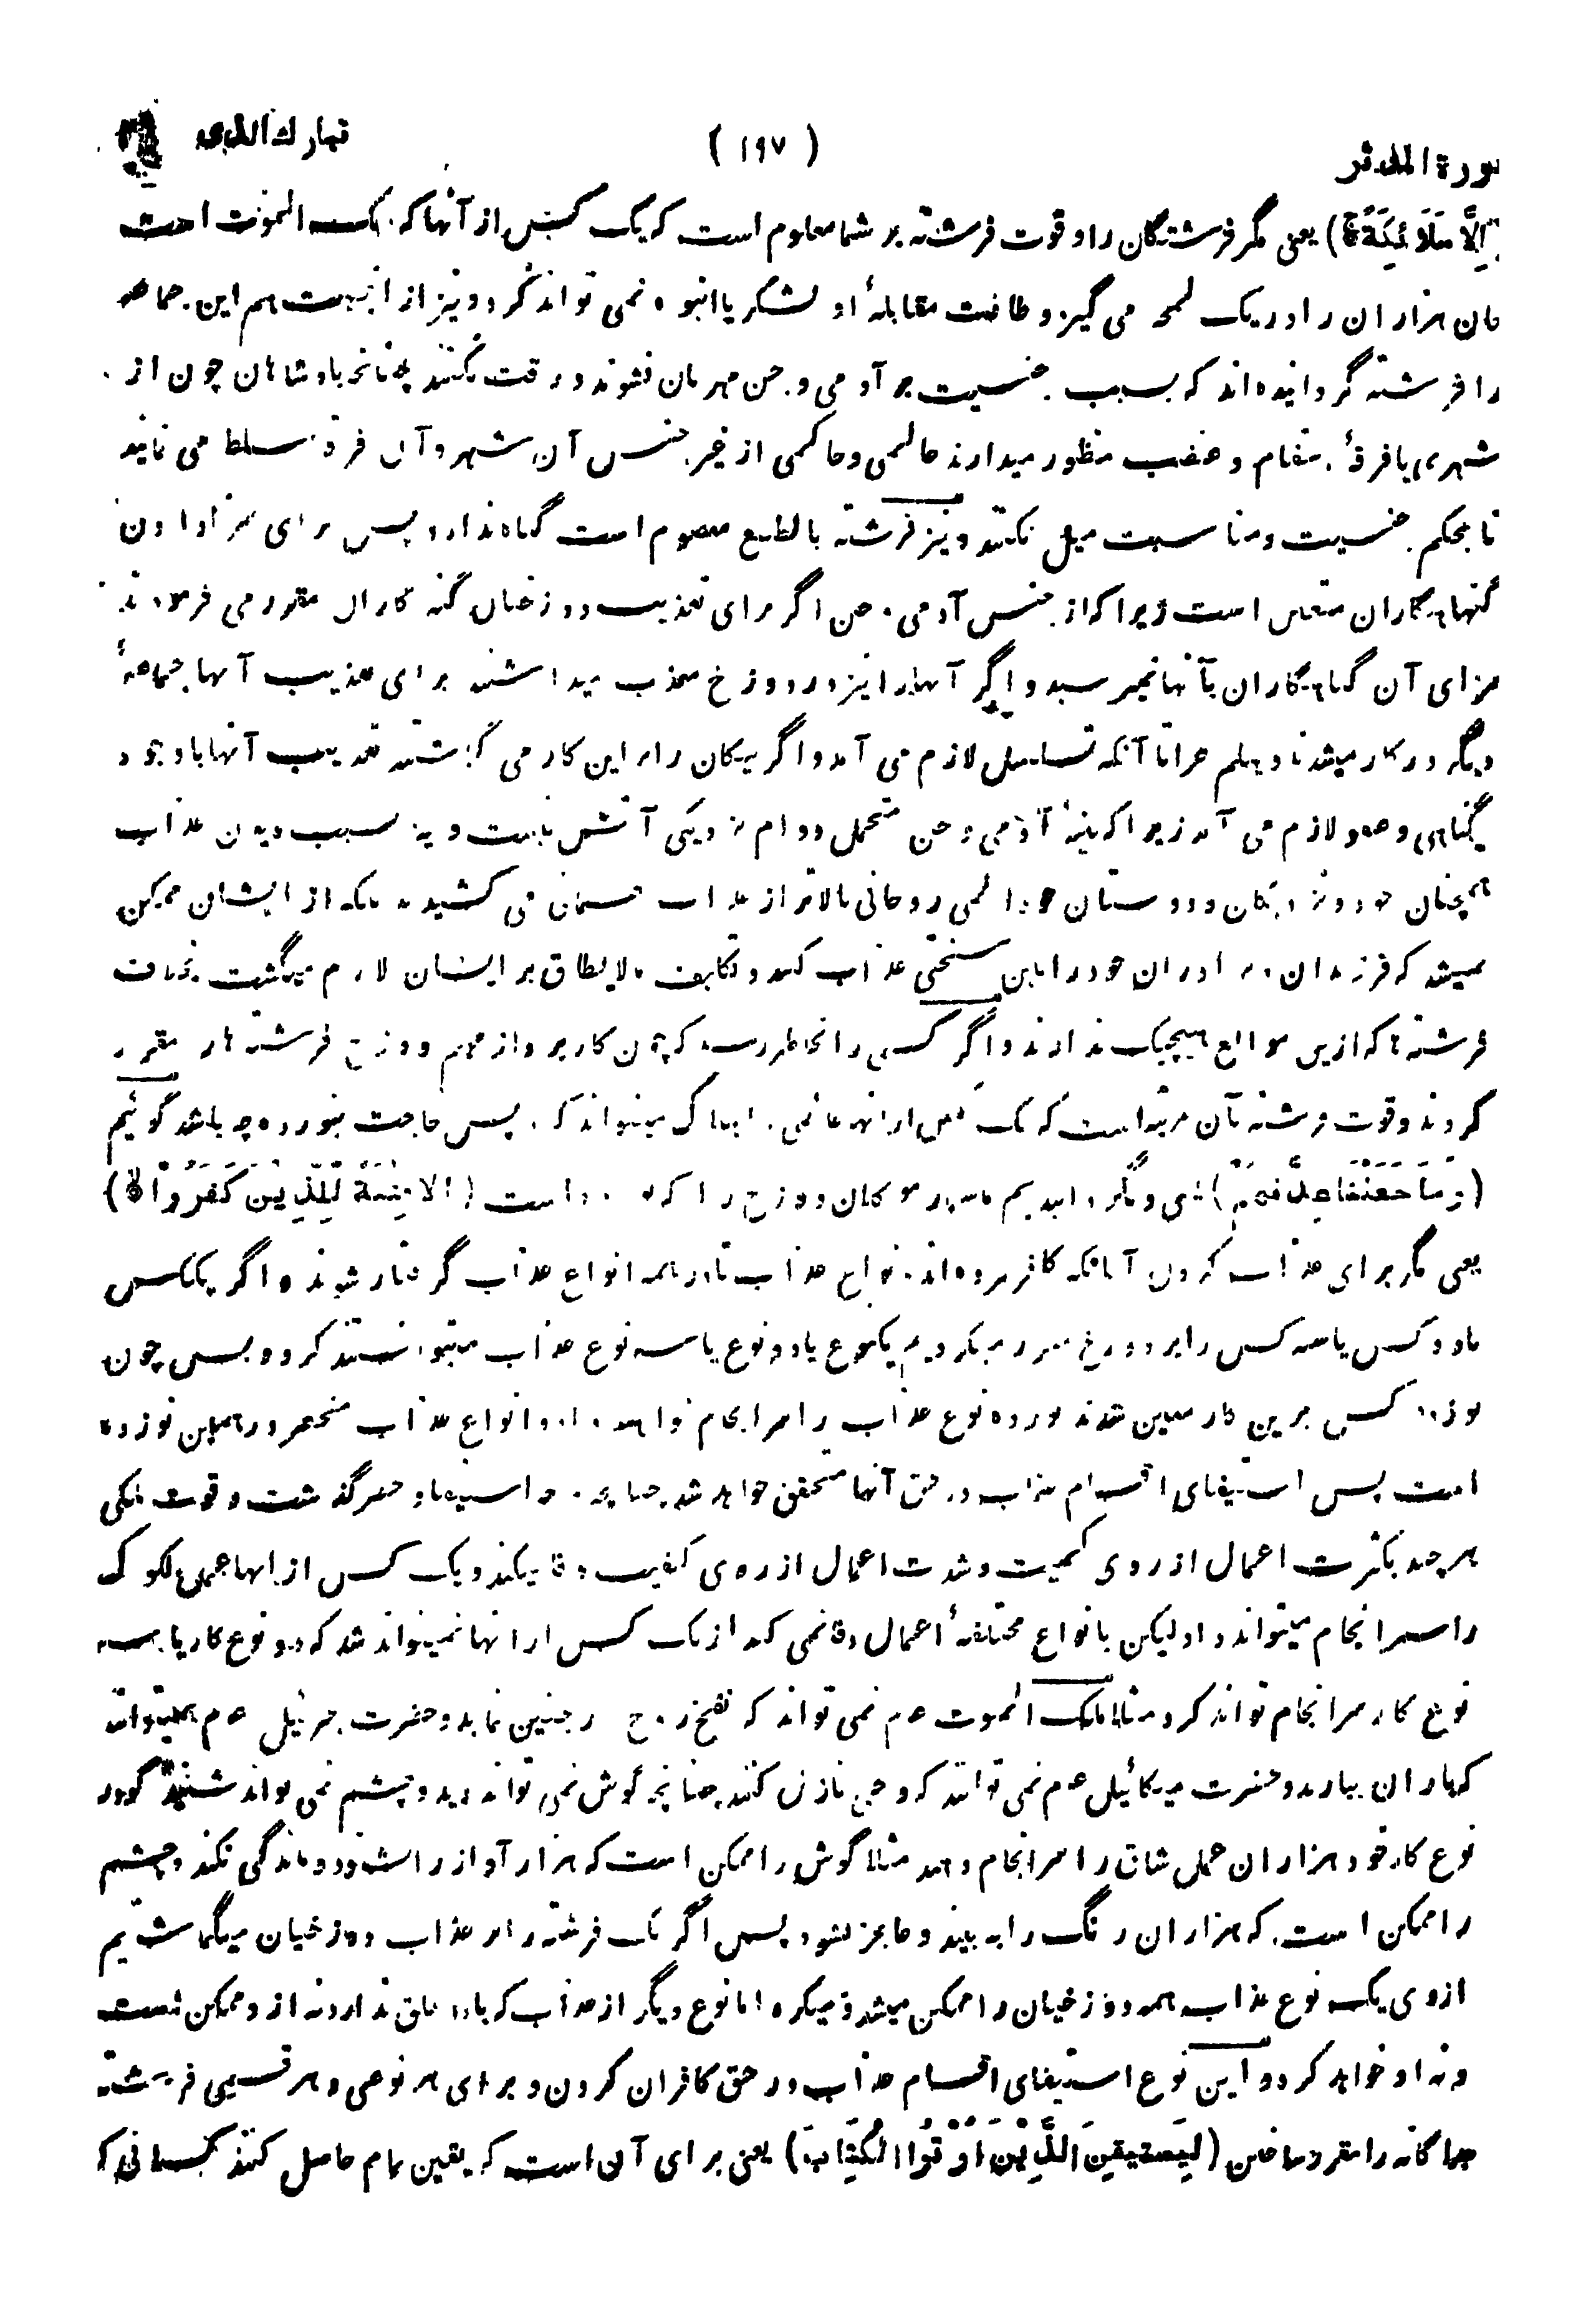 سورة المدثر (۱۹۷) تبارك الذی
(اِلَّا مَلَائِكَةً) یعنی مگر فرشتگان را و قوت فرشته بر شما معلوم است که یک کس از آنها که ملک الموت است
جان هزاران را در یک لمحه می گیرد و طاقت مقابلهٔ او لشکر یا انبوه نمی تواند کرد و نیز از اینجهت هم این جماعه
را فرشته گردانیده اند که بسبب جنسیت بر آدمی و جن مهربان نشوند و رقت نکنند چنانچه بادشاهان چون از
شهری یا فرقهٔ انتقام و غضب منظور میدارند ظالمی و حاکمی از غیر جنس آن شهر و آن فرقه مسلط می نمایند
تا بحکم جنسیت و مناسبت میل نکنند و نیز فرشته بالطبع معصوم است گناه ندارد پس برای سزا دادن
گنهکاران متعین است زیرا که از جنس آدمی و جن اگر برای تعذیب دوزخیان گنه کاران مقرر می فرمودند
سزای آن گناهگاران بآنها نمیرسید و اگر آنها را نیز در دوزخ معذب میداشتند برای تعذیب آنها جماعهٔ
دیگر در کار میشد و هلم جرا تا آنکه تسلسل لازم می آمد و اگر نیکان را بر این کار می گماشتند تعذیب آنها با وجود
بیگناهی و عفو لازم می آمد زیرا که بنیهٔ آدمی و جن متحمل دوام نزدیکی آتش نیست و نیز بسبب دیدن عذاب
همچنان خود و نزدیکان و دوستان خود المی روحانی بالاتر از عذاب جسمانی می کشیدند بلکه از ایشان ممکن
نمیشد که فرزندان و برادران خود را باین سختی عذاب کنند و تکلیف ما لا یطاق بر ایشان لازم میگشت بخلاف
فرشته ها که ازین موانع هیچیک ندارند و اگر کسی را بخاطر رسد که چون کارپرداز مهم دوزخ فرشته ها را مقرر
کردند و قوت فرشته بآن مرتبه است که یک کس از آنها عالمی را هلاک میتواند کرد پس حاجت بنوزده چه باشد گوئیم
(وَمَا جَعَلْنَا عِدَّتَهُمْ) یعنی و نگردانیدیم شمار موکلان دوزخ را که نوزده است (اِلَّا فِتْنَةً لِّلَّذِيْنَ كَفَرُوْا)
یعنی مگر برای عذاب کردن آنانکه کافر بوده اند بانواع عذاب تا در همه انواع عذاب گرفتار شوند و اگر یک کس
یا دو کس یا سه کس را بر دوزخ مقرر میکردیم یک نوع یا دو نوع یا سه نوع عذاب میتوانستند کرد و بس چون
نوزده کس برین کار معین شدند نوزده نوع عذاب را سرانجام خواهند داد و انواع عذاب منحصر در همین نوزده
است پس استیفای اقسام عذاب در حق آنها متحقق خواهد شد چنانچه وجه استیفا و حصر گذشت و قوت ملکی
هر چند بکثرت اعمال از روی کمیت و شدت اعمال از روی کیفیت وفا میکند و یک کس از آنها عمل لکوک
را سرانجام میتواند داد لیکن بانواع مختلفهٔ اعمال وفا نمی کند از یک کس از آنها نمیتواند شد که دو نوع کار یا سه
نوع کار سرانجام تواند کرد مثلا ملک الموت عم نمی تواند که نفخ روح در جنین نماید و حضرت جبرئیل عم نمیتواند
که باران ببارند و حضرت میکائیل عم نمی توانند که وحی نازل کنند چنانچه گوش نمی تواند دید و چشم نمی تواند شنید گو در
نوع کار خود هزاران عمل شاق را سرانجام دهند مثلا گوش را ممکن است که هزار آواز را بشنود و ماندگی نکند و چشم
را ممکن است که هزاران رنگ را به بیند و عاجز نشود پس اگر یک فرشته را بر عذاب دوزخیان میگماشتیم
از وی یک نوع عذاب همه دوزخیان را ممکن میشد و میکرد اما نوع دیگر از عذاب که باو تعلق ندارد نه از و ممکن است
و نه او خواهد کرد و این نوع استیفای اقسام عذاب در حق کافران کردن و برای هر نوعی و هر قسمی فرشته
جداگانه را مقرر ساختن (لِيَسْتَيْقِنَ الَّذِيْنَ اُوْتُوا الْكِتَابَ) یعنی برای آن است که یقین تمام حاصل کنند کسانی که